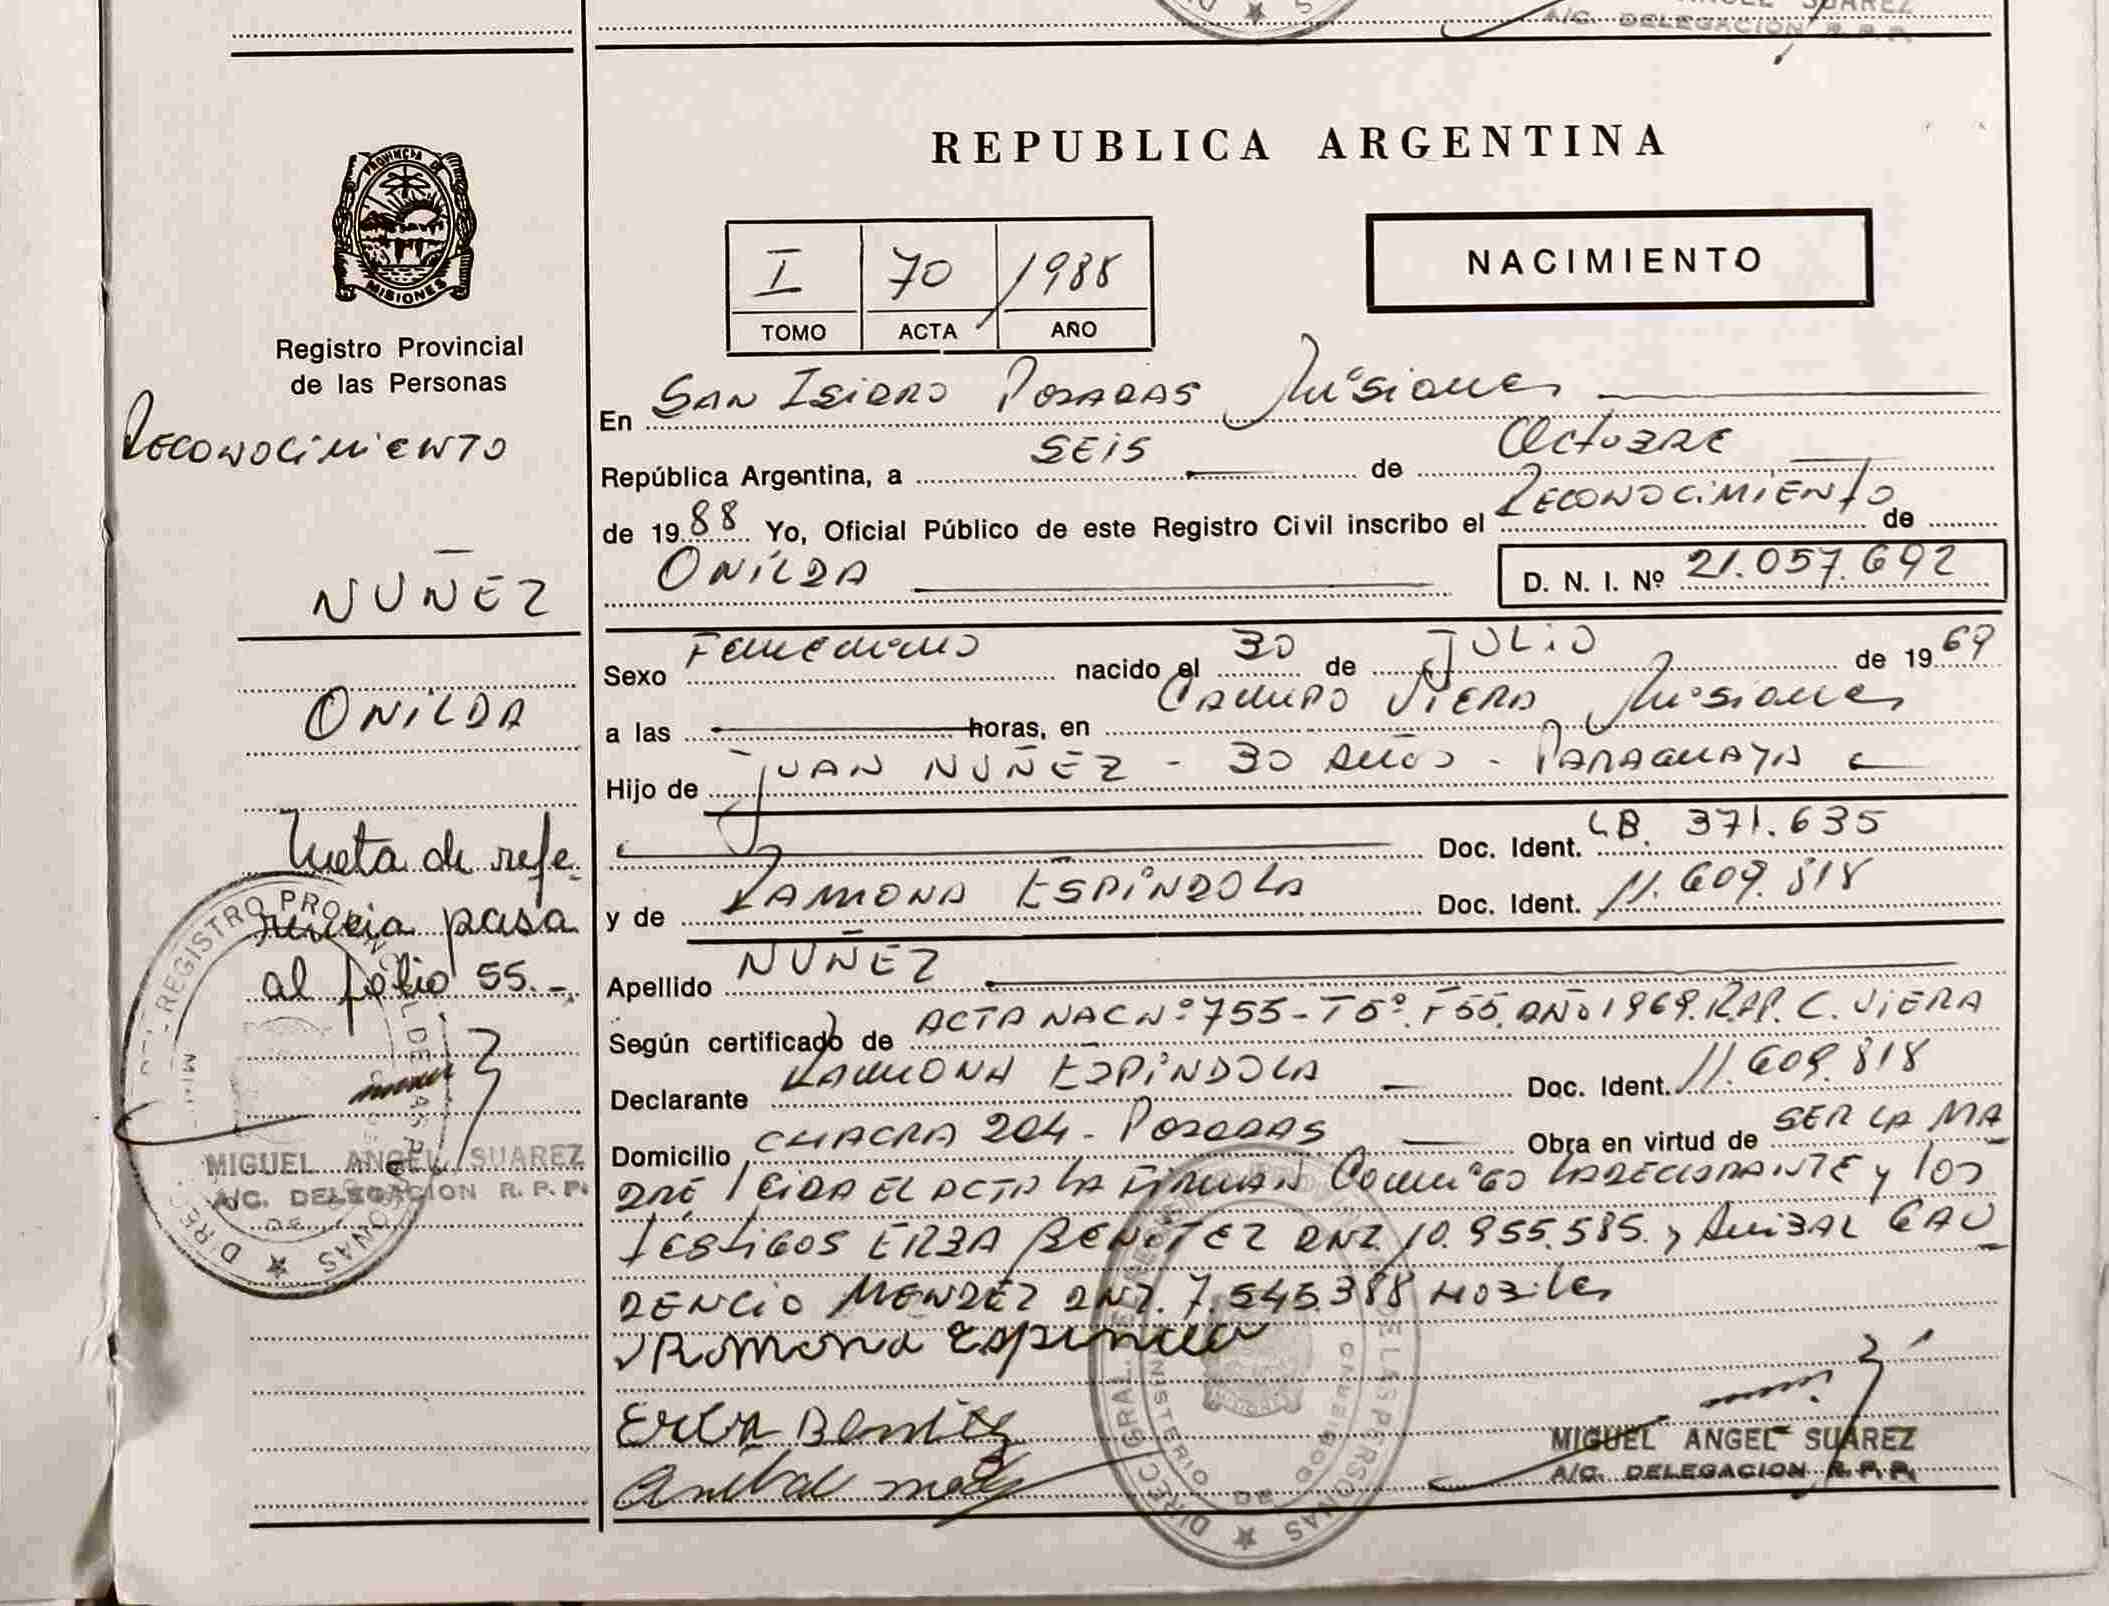 A/C. DELEGACION R. P. P.
PROVINCIA DE
MISIONES
Registro Provincial
de las Personas
Reconocimiento
NUÑEZ
ONILDA
Nueta de refe-
rencia pasa
al fólio 55.-
MIGUEL ANGEL SUAREZ
A/C. DELEGACION R. P. P.
REPUBLICA ARGENTINA
I 70 1988
TOMO ACTA AÑO
NACIMIENTO
En San Isidro Posadas Misiones
República Argentina, a SEIS de Octubre
de 1988 Yo, Oficial Público de este Registro Civil inscribo el Reconocimiento de
ONILDA D. N. I. Nº 21.057.692
Sexo Femenino nacido el 30 de JULIO de 1969
a las horas, en Campo Viera Misiones
Hijo de JUAN NUÑEZ - 30 Años - Paraguaya
Doc. Ident. 371.635
y de Ramona ESPINDOLA Doc. Ident. 11.609.818
Apellido NUÑEZ
Según certificado de ACTA NAC Nº 755 - T5º. F 55. AÑO 1969. C. VIERA
Declarante Ramona ESPINDOLA Doc. Ident. 11.609.818
Domicilio CHACRA 204 - Posadas Obra en virtud de SER LA MA
DRE Leida EL ACTA LA FIRMAN Conmigo LA DECLARANTE y los
Testigos ERBA BENITEZ DNI. 10.955.585. y Anibal GAU
DENCIO MENDEZ DNI. 7.545.388 Hobiles
Ramona Espindola
Erba Benitez
Anibal
MIGUEL ANGEL SUAREZ
A/C. DELEGACION R. P. P.